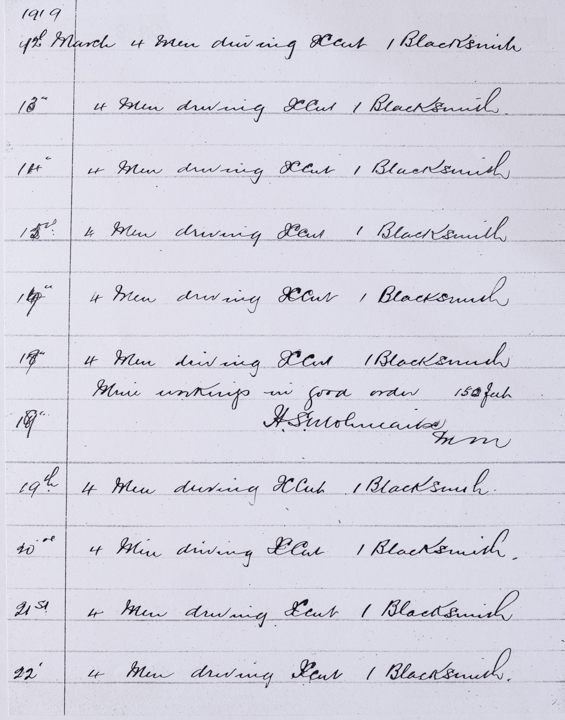 1919
12th March 4 Men driving Xcut 1 Blacksmith
13" 4 Men driving XCut 1 Blacksmith.
14" 4 Men driving XCut 1 Blacksmith
15 4 Men driving XCut 1 Blacksmith
4 Men driving XCut 1 Blacksmith
4 Men driving XCut 1 Blacksmith
Mine workings in good order 150 feet
H.S.
MM
19th 4 Men driving XCut 1 Blacksmith.
20 4 Men driving XCut 1 Blacksmith.
21st 4 Men driving Xcut 1 Blacksmith
22 4 Men driving Xcut 1 Blacksmith.